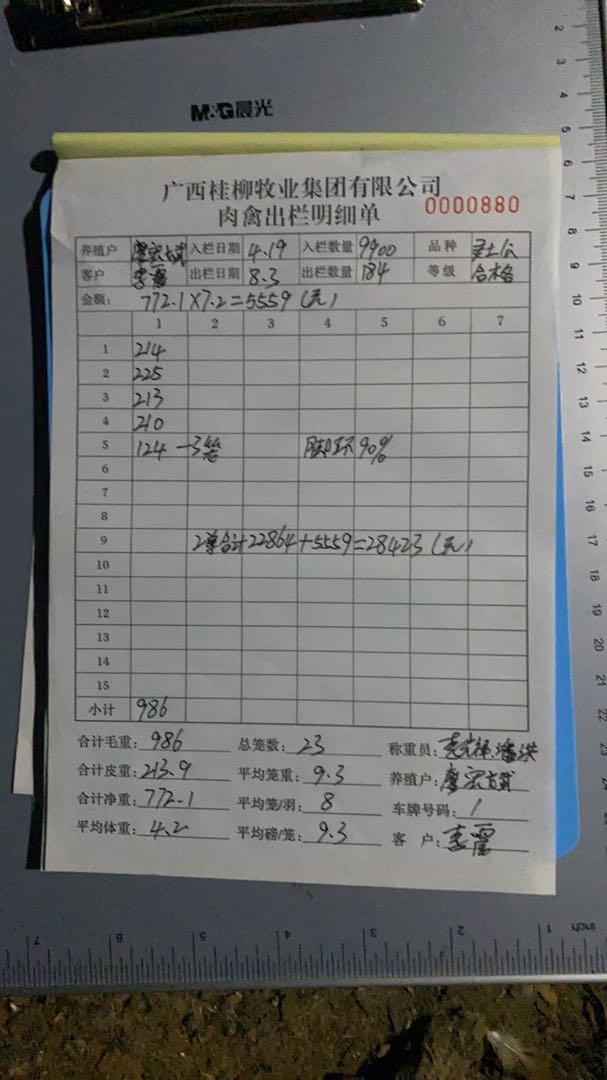 M&G晨光
广西桂柳牧业集团有限公司
肉禽出栏明细单 0000880
养殖户 入栏日期 4.19 入栏数量 9900 品种
客户 李霞 出栏日期 8.3 出栏数量 184 等级 合格
金额: 772.1×7.2=5559(元)
1 2 3 4 5 6 7
1 214
2 225
3 213
4 210
5 124 -3笼 脚环90%
6
7
8
9 2单合计22864+5559=28423(元)
10
11
12
13
14
15
小计 986
合计毛重: 986 总笼数: 23 称重员:
合计皮重: 213.9 平均笼重: 9.3 养殖户:
合计净重: 772.1 平均笼/羽: 8 车牌号码: /
平均体重: 4.2 平均磅/笼: 9.3 客 户: 李霞
2
3
4
5
6
7
8
9
10
11
12
13
14
15
16
17
18
19
20
21
22
23
7 6 5 4 3 2 1 inch